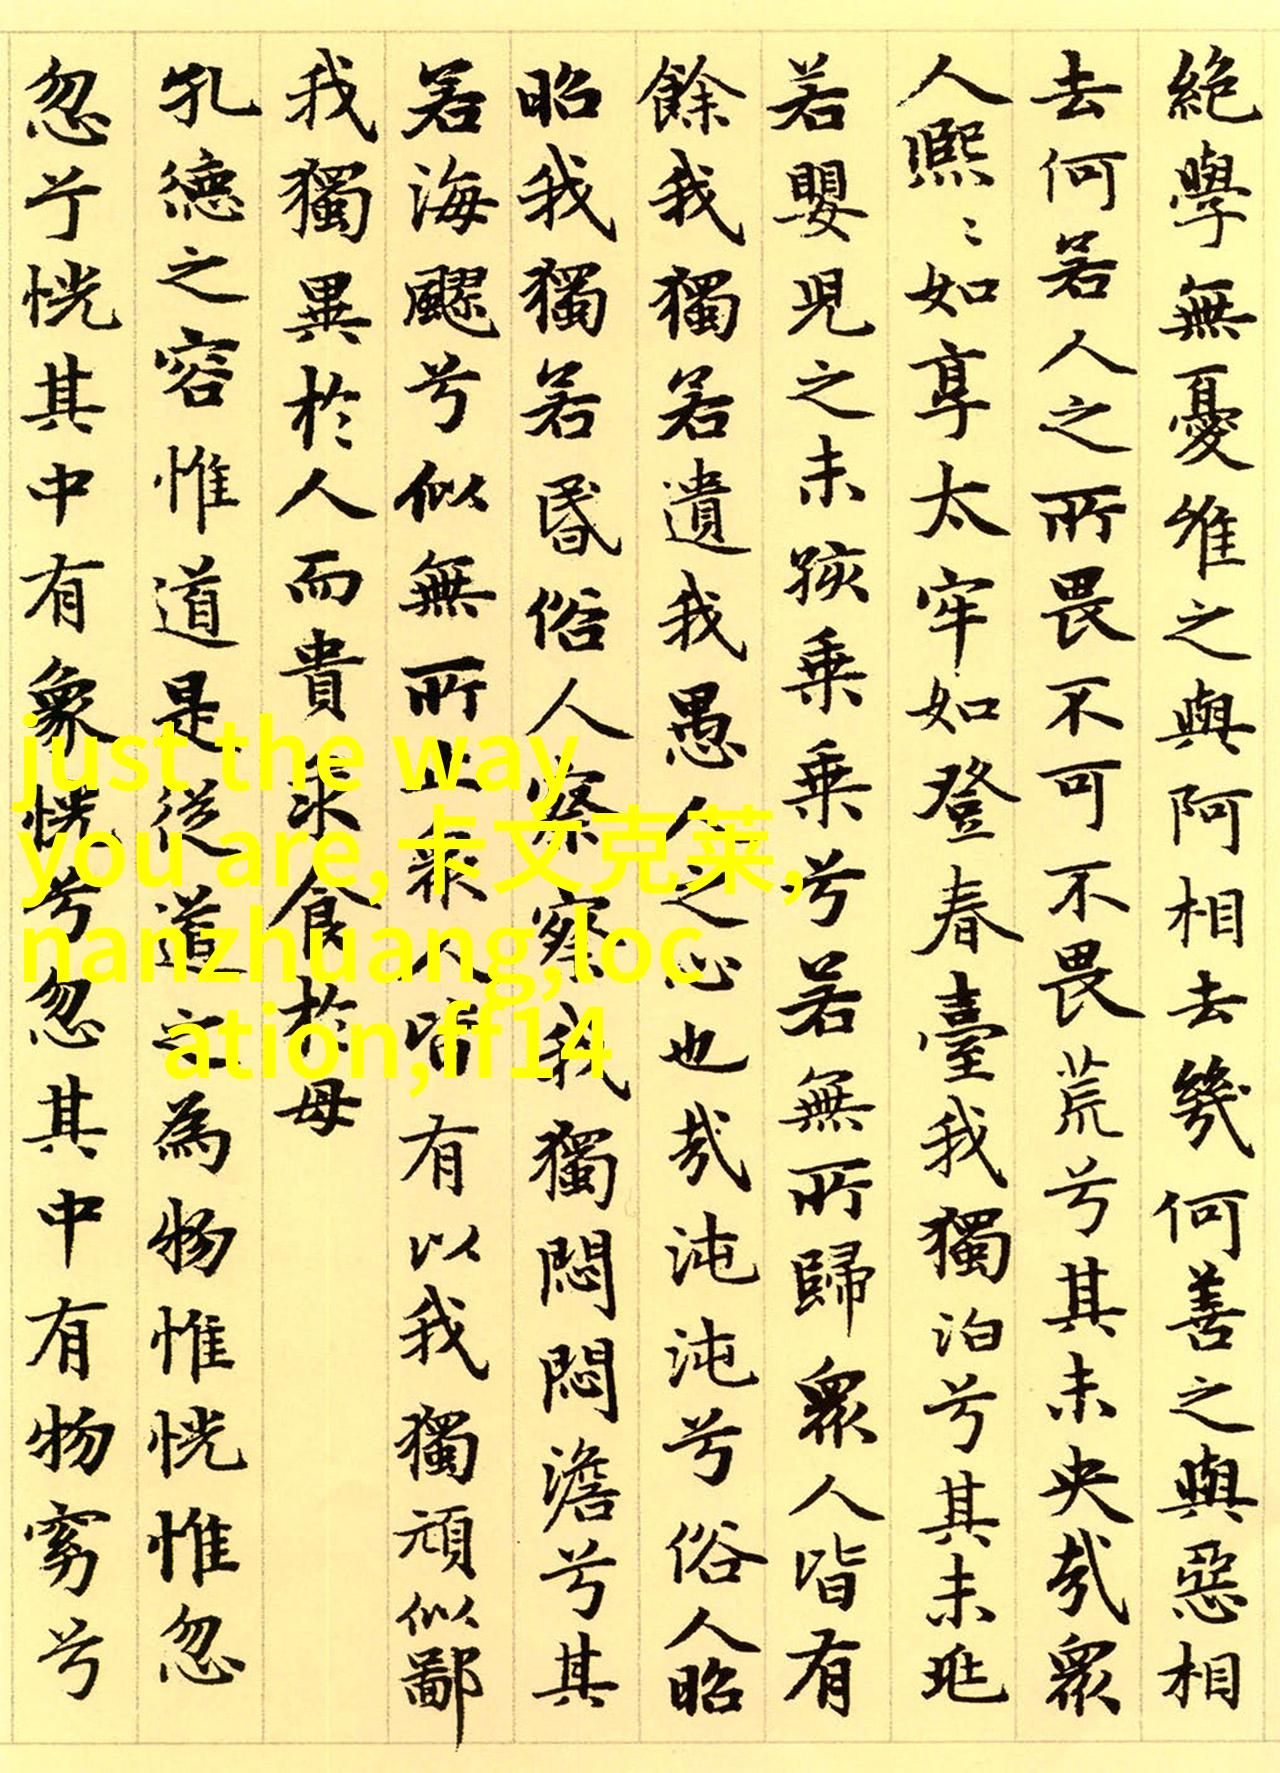 絕學無憂唯之與阿相去幾何善之與惡相
去何若人之所畏不可不畏荒兮其未央哉眾
人熙〻如享太牢如登春臺我獨泊兮其未兆
若嬰兒之未孩乗乗兮若無所歸眾人皆有
餘我獨若遺我愚人之心也哉沌沌兮俗人昭
昭我獨若昏俗人察察我獨悶悶澹兮其
若海飂兮似無所止眾人皆有以我獨頑似鄙
我獨異於人而貴求食於母
孔德之容惟道是從道之為物惟恍惟忽
忽兮恍其中有象恍兮忽其中有物窈兮
just the way
you are,卡文克莱,
nanzhuang,loc
ation,ff14